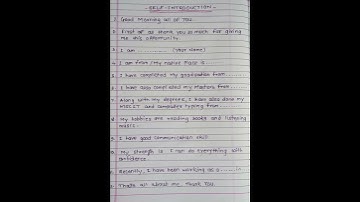 - SELF-INTRODUCTION -
Good Morning all of You.
First of all thank you so much for giving
me this opportunity.
I am ............ (Your name)
I am from / My native place is ......
I have completed my graduation from ......
I have also completed my Masters from ......
Along with my degrees, I have also done my
MSCIT and computer typing from ......
My hobbies are reading books and listening
music.
I have good communication skill.
My strength is I can do everything with
confidence.
Recently, I have been working as a ...... in
That's all about me. Thank You.